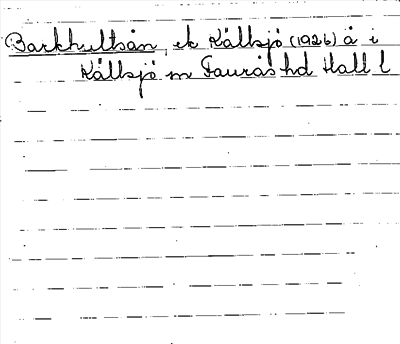 Barkhultsån, ek Källsjö (1926) å i
Källsjö sn Faurås hd Hall l